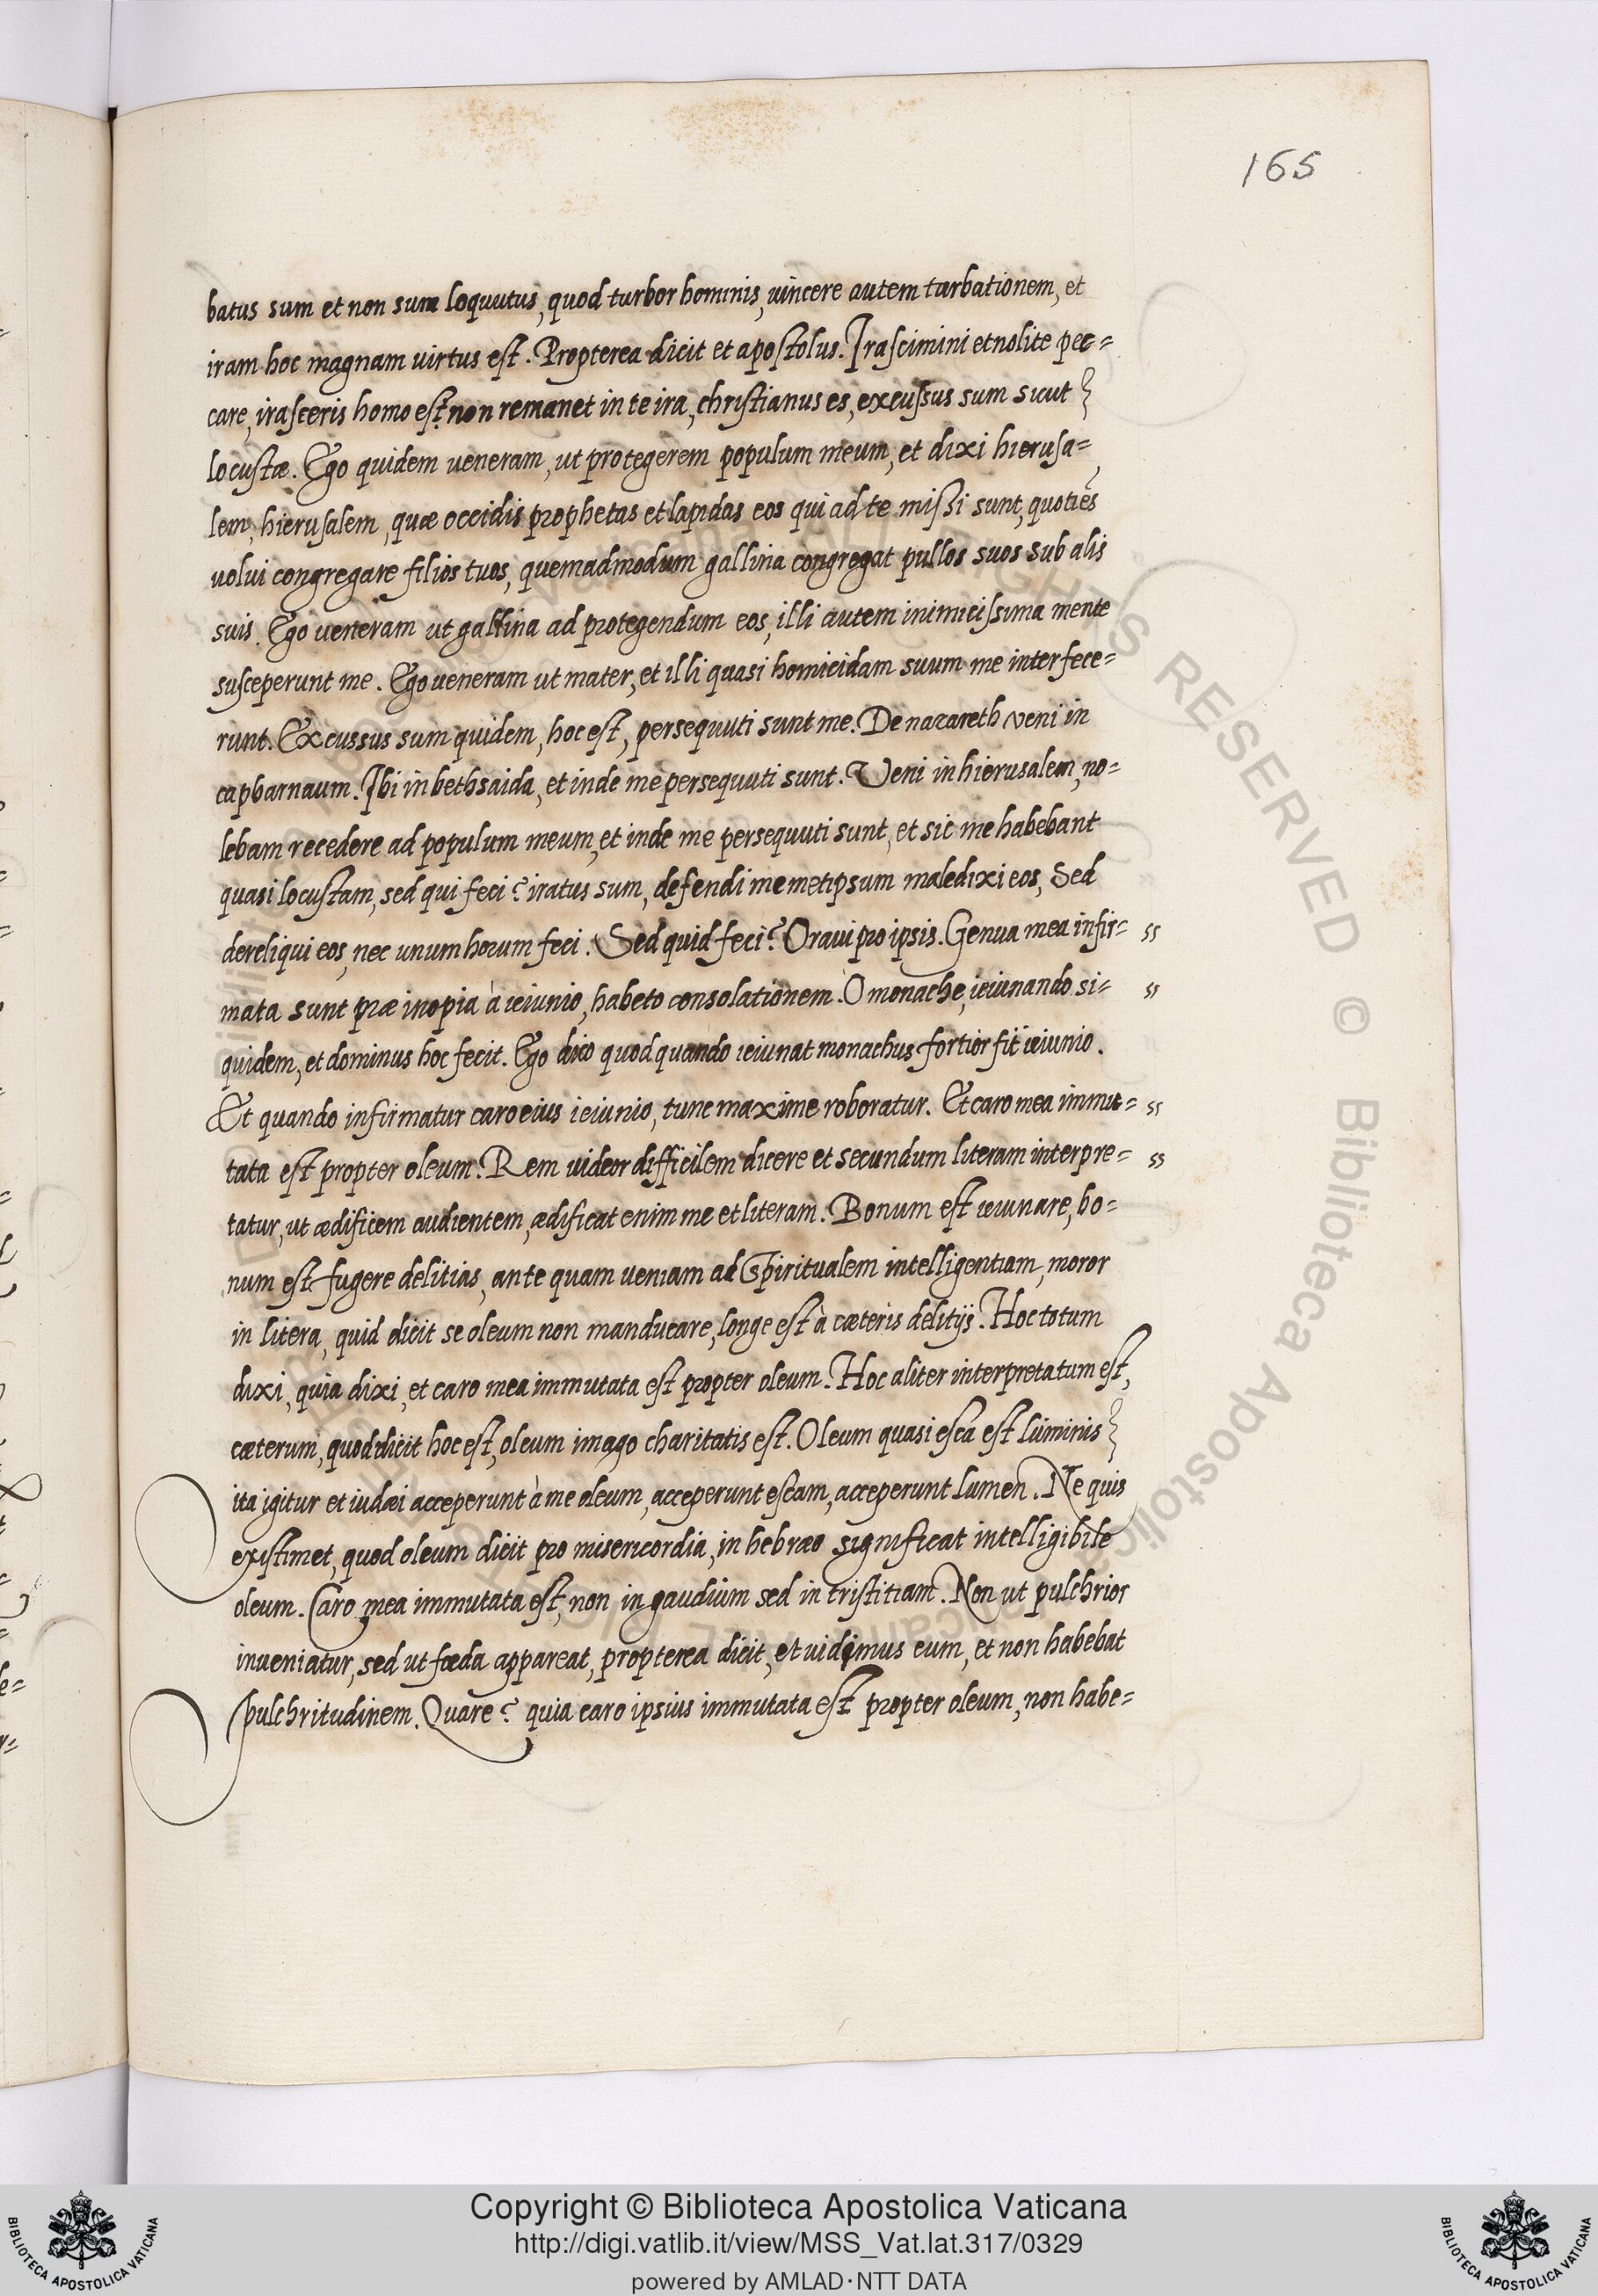 165
batus sum et non sum loquutus, quod turbor hominis, uincere autem turbationem, et
iram hoc magnam uirtus est. Propterea dicit et apostolus. Irascimini et nolite pec=
care, irasceris homo est, non remanet in te ira, christianus es, excussus sum sicut
locustæ. Ego quidem ueneram, ut protegerem populum meum, et dixi hierusa=
lem, hierusalem, quæ occidis prophetas et lapidas eos qui ad te missi sunt, quoties
uolui congregare filios tuos, quemadmodum gallina congregat pullos suos sub alis
suis. Ego ueneram ut gallina ad protegendum eos, illi autem inimicissima mente
susceperunt me. Ego ueneram ut mater, et illi quasi homicidam suum me interfece=
runt. Excussus sum quidem, hoc est, persequuti sunt me. De nazareth veni in
capharnaum. Ibi in bethsaida, et inde me persequuti sunt. Veni in hierusalem, no=
lebam recedere ad populum meum, et inde me persequuti sunt, et sic me habebant
quasi locustam, sed qui feci? iratus sum, defendi memetipsum maledixi eos, Sed
dereliqui eos, nec unum horum feci. Sed quid feci? Oraui pro ipsis. Genua mea infir= ss
mata sunt præ inopia à ieiunio, habeto consolationem. O monache, ieiunando si= ss
quidem, et dominus hoc fecit. Ego dico quod quando ieiunat monachus fortior fit ieiunio.
Et quando infirmatur caro eius ieiunio, tunc maxime roboratur. Et caro mea immu= ss
tata est propter oleum. Rem uideor difficilem dicere et secundum literam interpre= ss
tatur, ut ædificem audientem, ædificat enim me et literam. Bonum est ieiunare, bo=
num est fugere delitias, ante quam ueniam ad Spiritualem intelligentiam, moror
in litera, quid dicit se oleum non manducare, longe est à cæteris delitijs. Hoc totum
dixi, quia dixi, et caro mea immutata est propter oleum. Hoc aliter interpretatum est,
cæterum, quod dicit hoc est, oleum imago charitatis est. Oleum quasi esca est luminis
ita igitur et iudæi acceperunt à me oleum, acceperunt escam, acceperunt lumen. Ne quis
existimet, quod oleum dicit pro misericordia, in hebræo significat intelligibile
oleum. Caro mea immutata est, non in gaudium sed in tristitiam. Non ut pulchrior
inueniatur, sed ut fœda appareat, propterea dicit, et uidimus eum, et non habebat
pulchritudinem. Quare? quia caro ipsius immutata est propter oleum, non habe=
Copyright © Biblioteca Apostolica Vaticana
http://digi.vatlib.it/view/MSS_Vat.lat.317/0329
powered by AMLAD·NTT DATA
BIBLIOTECA APOSTOLICA VATICANA
BIBLIOTECA APOSTOLICA VATICANA
RIGHTS RESERVED © Biblioteca Apostolica